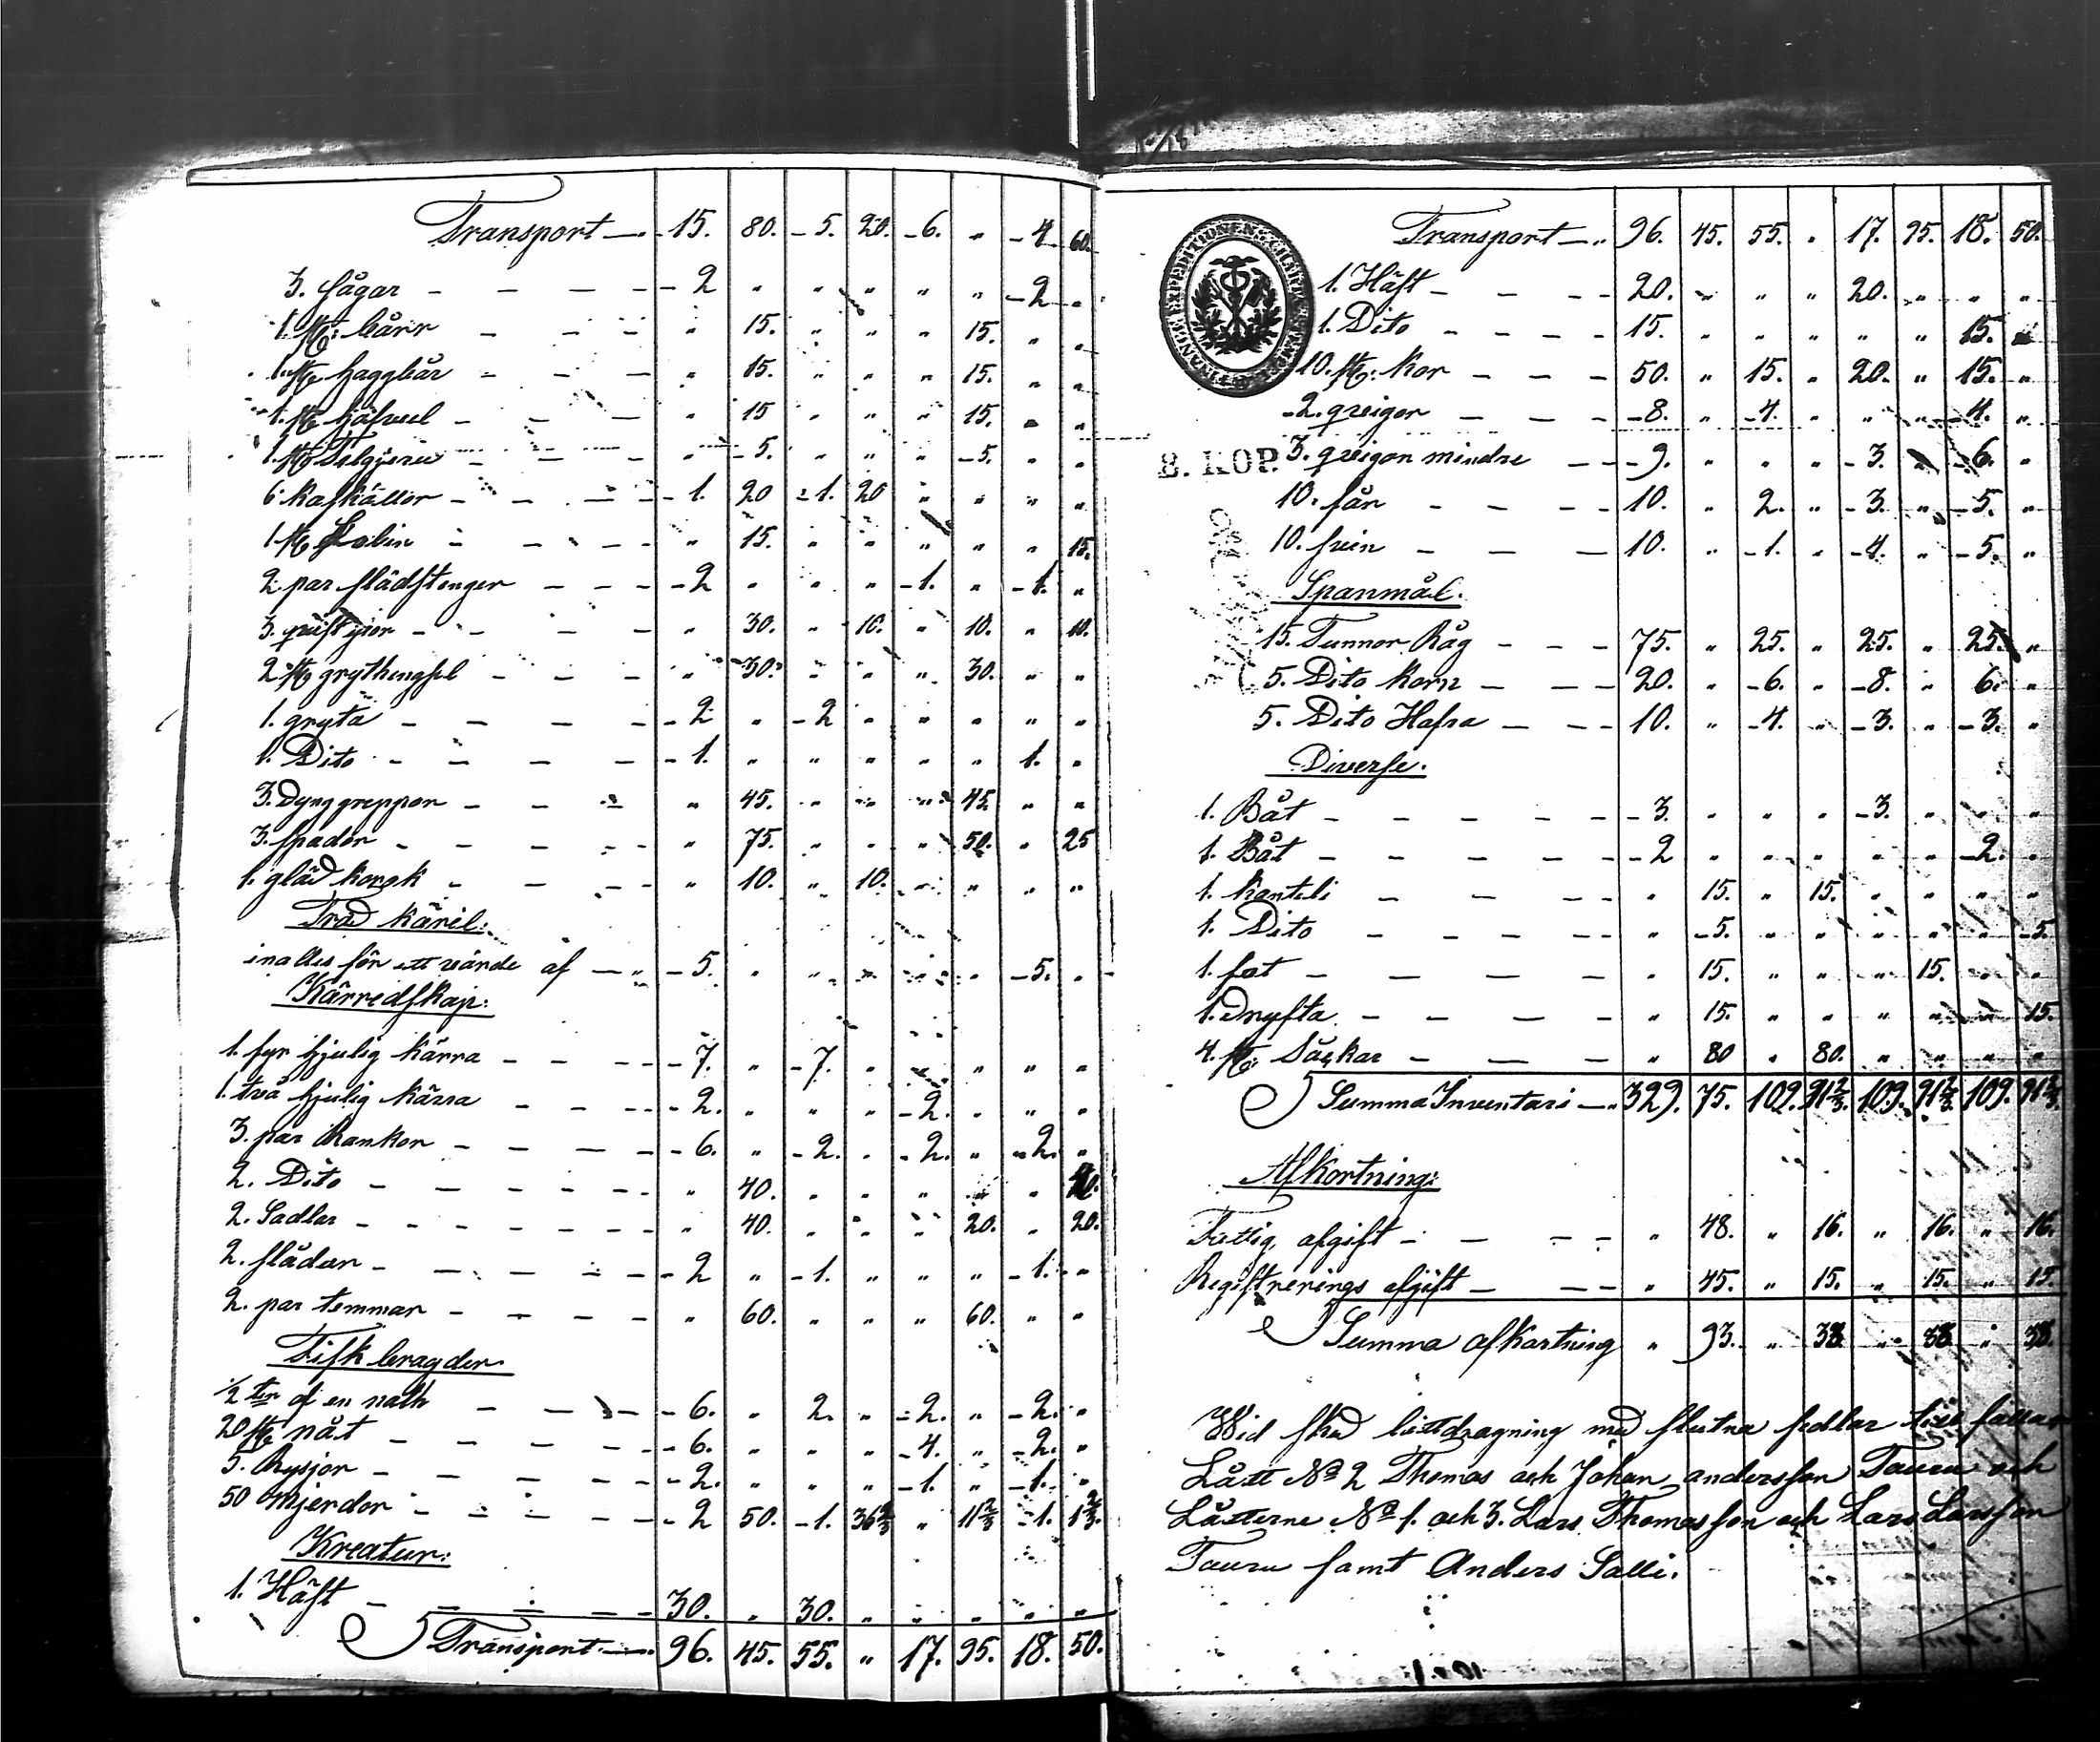 Transport 15. 80. 5. 20. 6. " 4 60.
3. sågar 2 " " " " " 2 "
1. st: bårr " 15. " " " 15. " "
1. st haggbår " 15. " " " 15. " "
1. st häfvul " 15 " " " 15. " "
1. st " 5. " " " 5. " "
6. Kaskällor 1. 20 1. 20 " " " "
1 st " 15. " " " " " 15.
2. par slädstenger 2 " " " 1. " 1. "
3. " 30. " 10. " 10. " 10.
2 st grythengsel " 30. " " " 30. " "
1. gryta 2 " 2 " " " " "
1. Dito 1. " " " " " 1. "
3. Dynggreppor " 45. " " " 45. " "
3. spador " 75. " " " 50. " 25
1. gläd korgk " 10. " 10. " " " "
Träd käril:
inalles för ett värde af 5. " " " " " 5. "
Kärredskap:
1. fyr hjulig kärra 7. " 7. " " " " "
1. två hjulig kärra 2. " " " 2. " " "
3. par Rankor 6. " 2. " 2. " 2. "
2. Dito " 40. " " " " " 40.
2. Sadlar " 40. " " " 20. " 20.
2. slädar 2 " 1. " " " 1. "
2. par temmar " 60. " " " 60. " "
Fiskbragder
1/2 ten af en noth 6. " 2. " 2. " 2. "
20 st nät 6. " " " 4. " 2. "
5. Rysjor 2. " " " 1. " 1. "
50 mjerdor 2 50. 1. 36 2/3 " 11 2/3 1. 1 2/3.
Kreatur:
1. Häst 30. " 30. " " " " "
Transport 96. 45. 55. " 17. 95. 18. 50.
Transport 96. 45. 55. " 17. 95. 18. 50.
1. Häst 20. " " " 20. " " "
1. Dito 15. " " " " " 15. "
10. st: Kor 50. " 15. " 20. " 15. "
2. qvigor 8. " 4. " " " 4. "
8. KOP.
3. qvigor mindre 9. " " " 3. " 6. "
10. får 10. " 2. " 3. " 5. "
10. svin 10. " 1. " 4. " 5. "
Spanmål.
15. Tunnor Råg 75. " 25. " 25. " 25. "
5. Dito Korn 20. " 6. " 8. " 6. "
5. Dito Hafra 10. " 4. " 3. " 3. "
Diverse.
1. Båt 3. " " " 3. " " "
1. Båt 2 " " " " " 2. "
1. Kanteli " 15. " 15. " " " "
1. Dito " 5. " " " " " 5.
1. fat " 15. " " " 15. " "
1. Dryfta " 15. " " " " " 15.
4. st: Säckar " 80 " 80. " " " "
Summa Inventari 329. 75. 109. 91 2/3. 109. 91 2/3. 109. 91 2/3.
Afkortning:
Fattig afgift " 48. " 16. " 16. " 16.
Registrerings afgift " 45. " 15. " 15. " 15.
Summa afkortning " 93. " 38. " 38. " 38.
Wid sked lottdragning med slutna sedlar
Lått No 2 Thomas och Johan andersson Tauru och
Låtterne No 1. och 3. Lars Thomasson och Lars Larsson
Tauru samt Anders Salli.